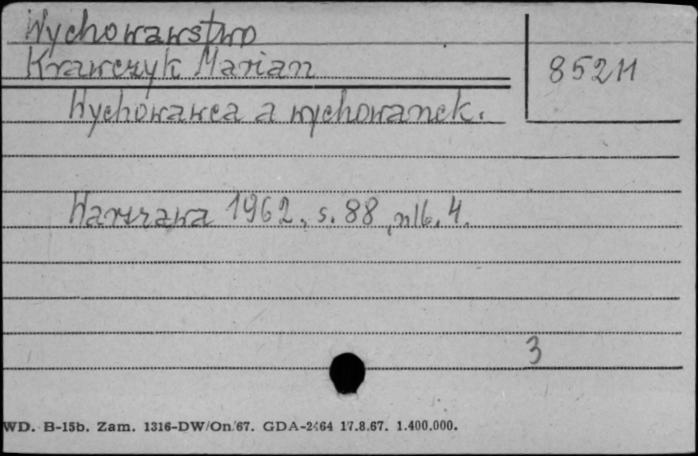 Wychowawstwo
Krawczyk Marian
85211
Wychowawca a wychowanek.
Warszawa 1962, s. 88, nlb. 4.
3
WD. B-15b. Zam. 1316-DW/On/67. GDA-2464 17.8.67. 1.400.000.